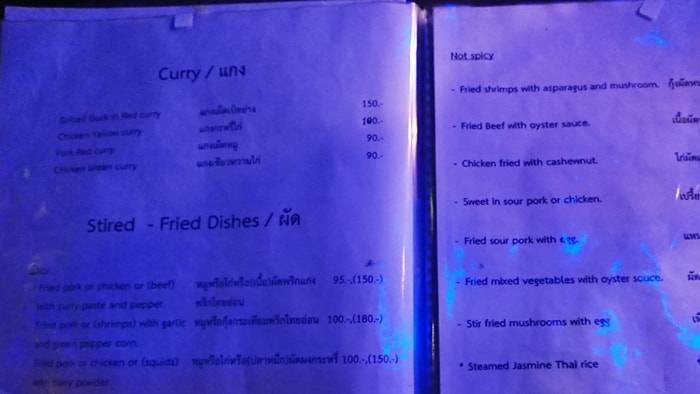 Curry / แกง
Grilled Duck in Red curry แกงเผ็ดเป็ดย่าง 150.-
Chicken Yellow curry แกงกะหรี่ไก่ 100.-
Pork Red curry แกงเผ็ดหมู 90.-
Chicken Green curry แกงเขียวหวานไก่ 90.-
Stired - Fried Dishes / ผัด
Fried pork or chicken or (beef) หมูหรือไก่หรือ(เนื้อ)ผัดพริกแกง 95.-,(150.-)
with curry paste and pepper. พริกไทยอ่อน
Fried pork or (shrimps) with garlic หมูหรือกุ้งกระเทียมพริกไทยอ่อน 100.-,(180.-)
and green pepper corn.
Fried pork or chicken or (squids) หมูหรือไก่หรือ(ปลาหมึก)ผัดผงกระหรี่ 100.-,(150.-)
with curry powder.
Not spicy
- Fried shrimps with asparagus and mushroom.
- Fried Beef with oyster sauce.
- Chicken fried with cashewnut.
- Sweet in sour pork or chicken.
- Fried sour pork with egg.
- Fried mixed vegetables with oyster sauce.
- Stir fried mushrooms with egg
* Steamed Jasmine Thai rice